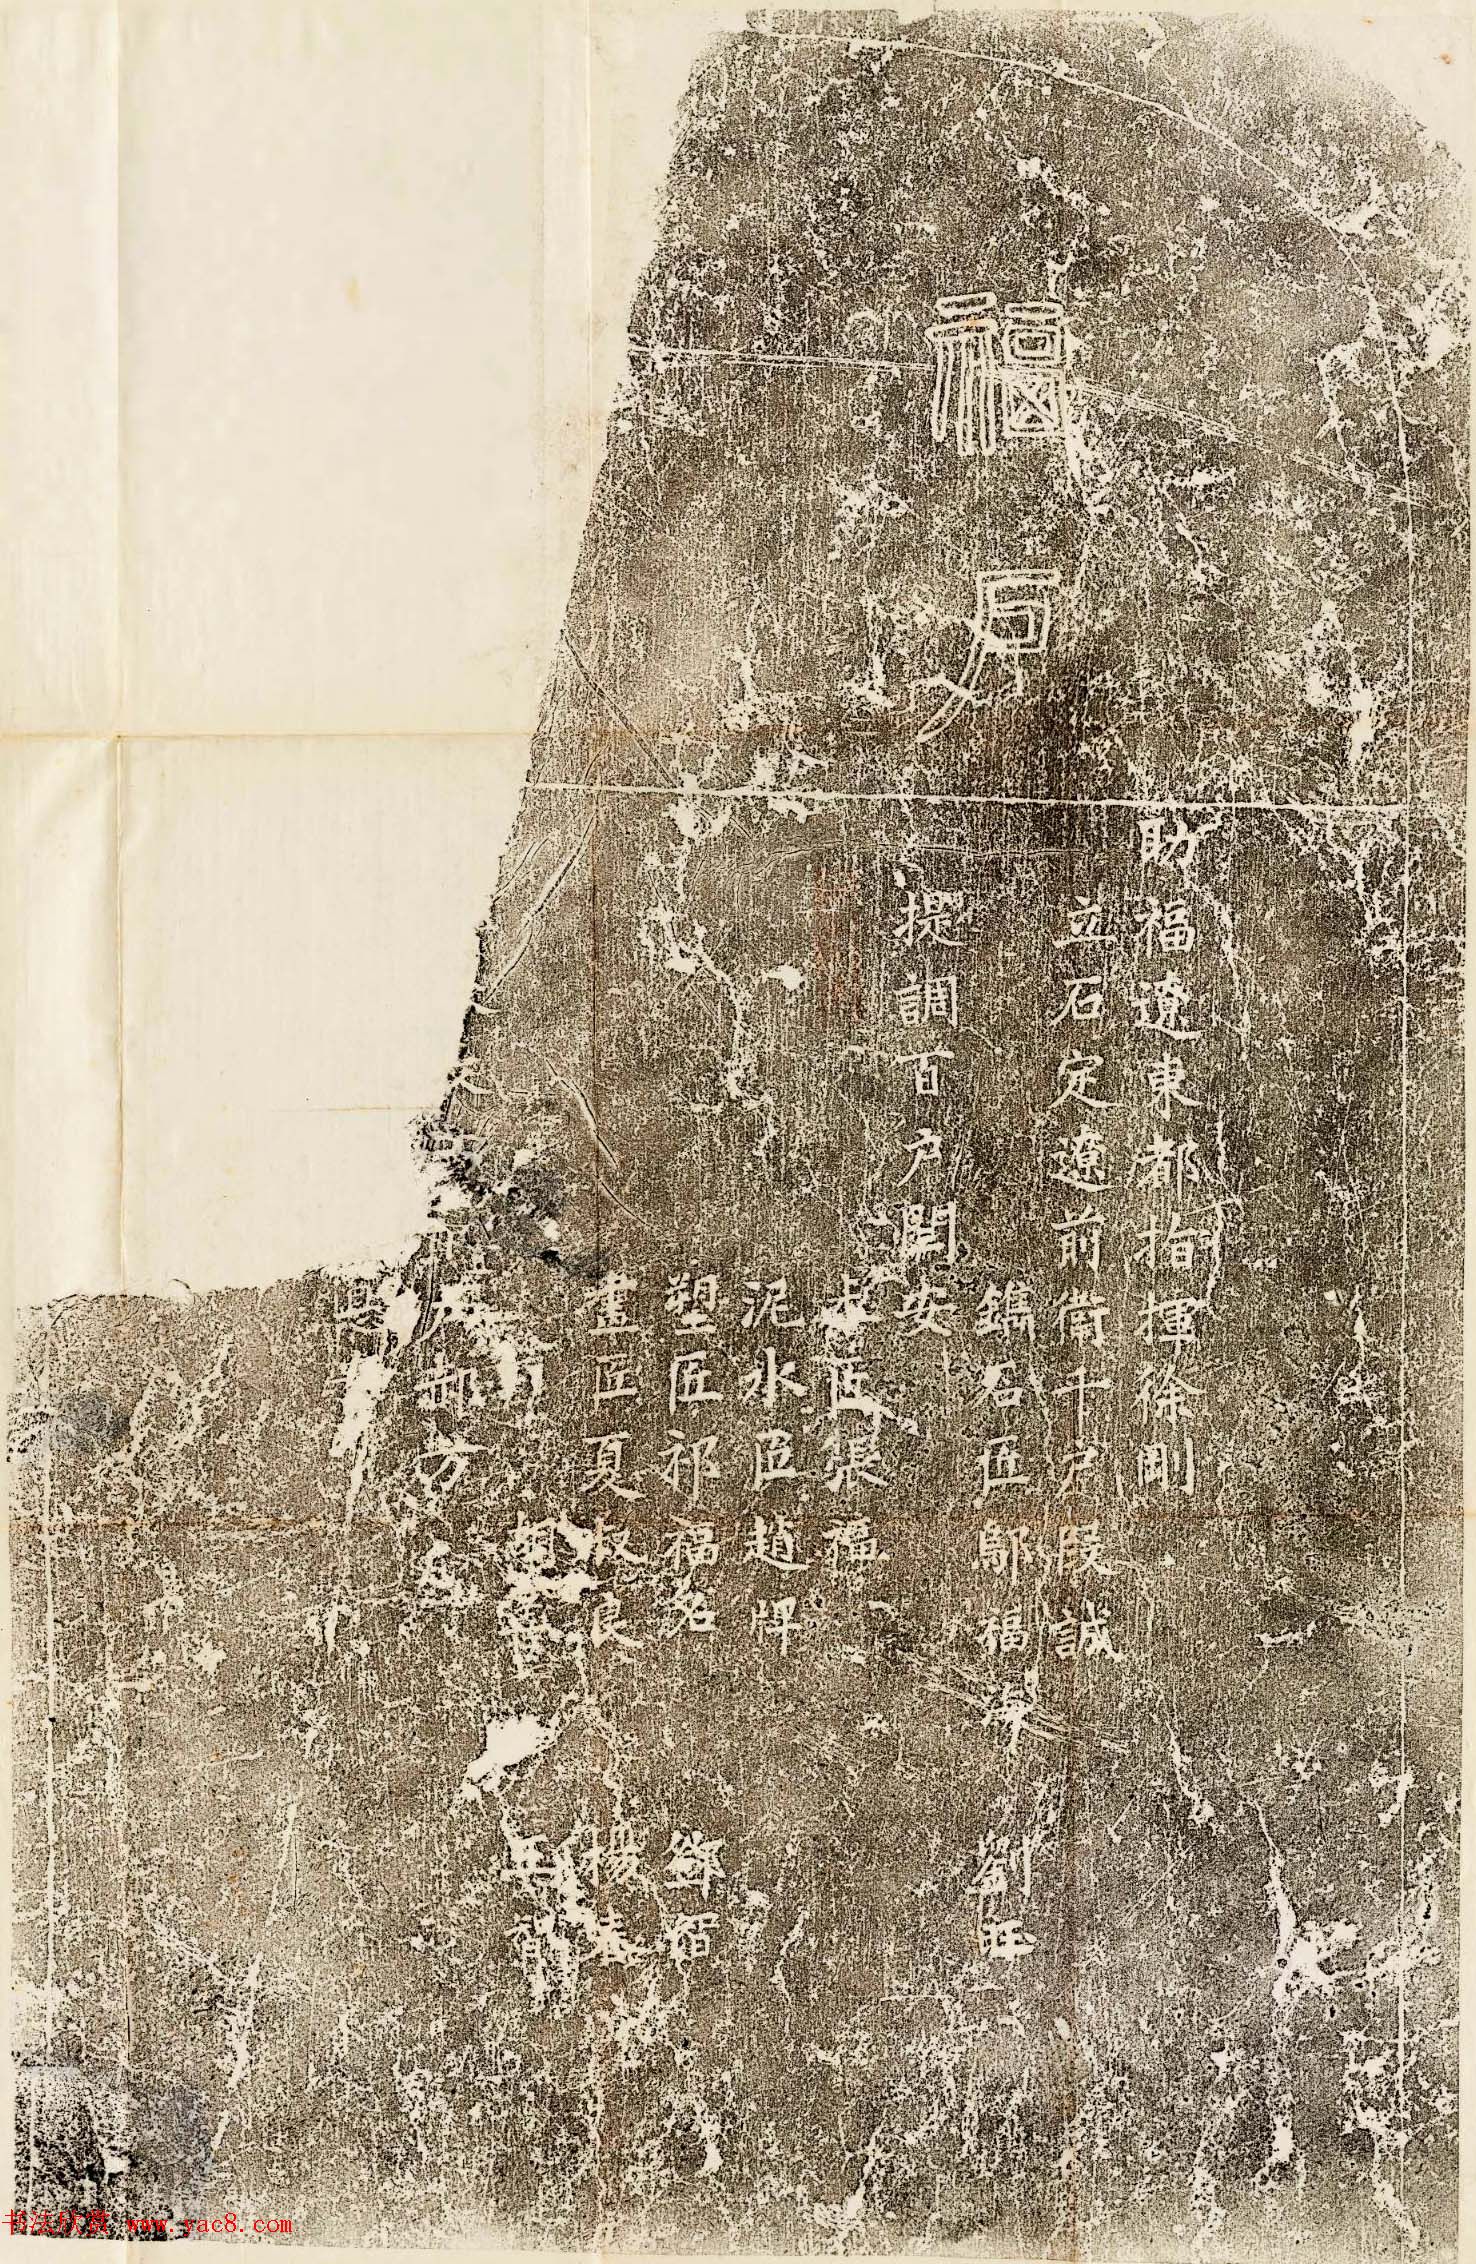 福
助福遼東都指揮徐剛
立石定遼前衛千户段誠
鐫石匠鄔福海 劉玨
提調百户閻安
木匠張福
泥水匠趙牌
塑匠祁福名 鄧智
畫匠夏叔良 楊春
胡 王
户郝方
书法欣赏 www.yac8.com